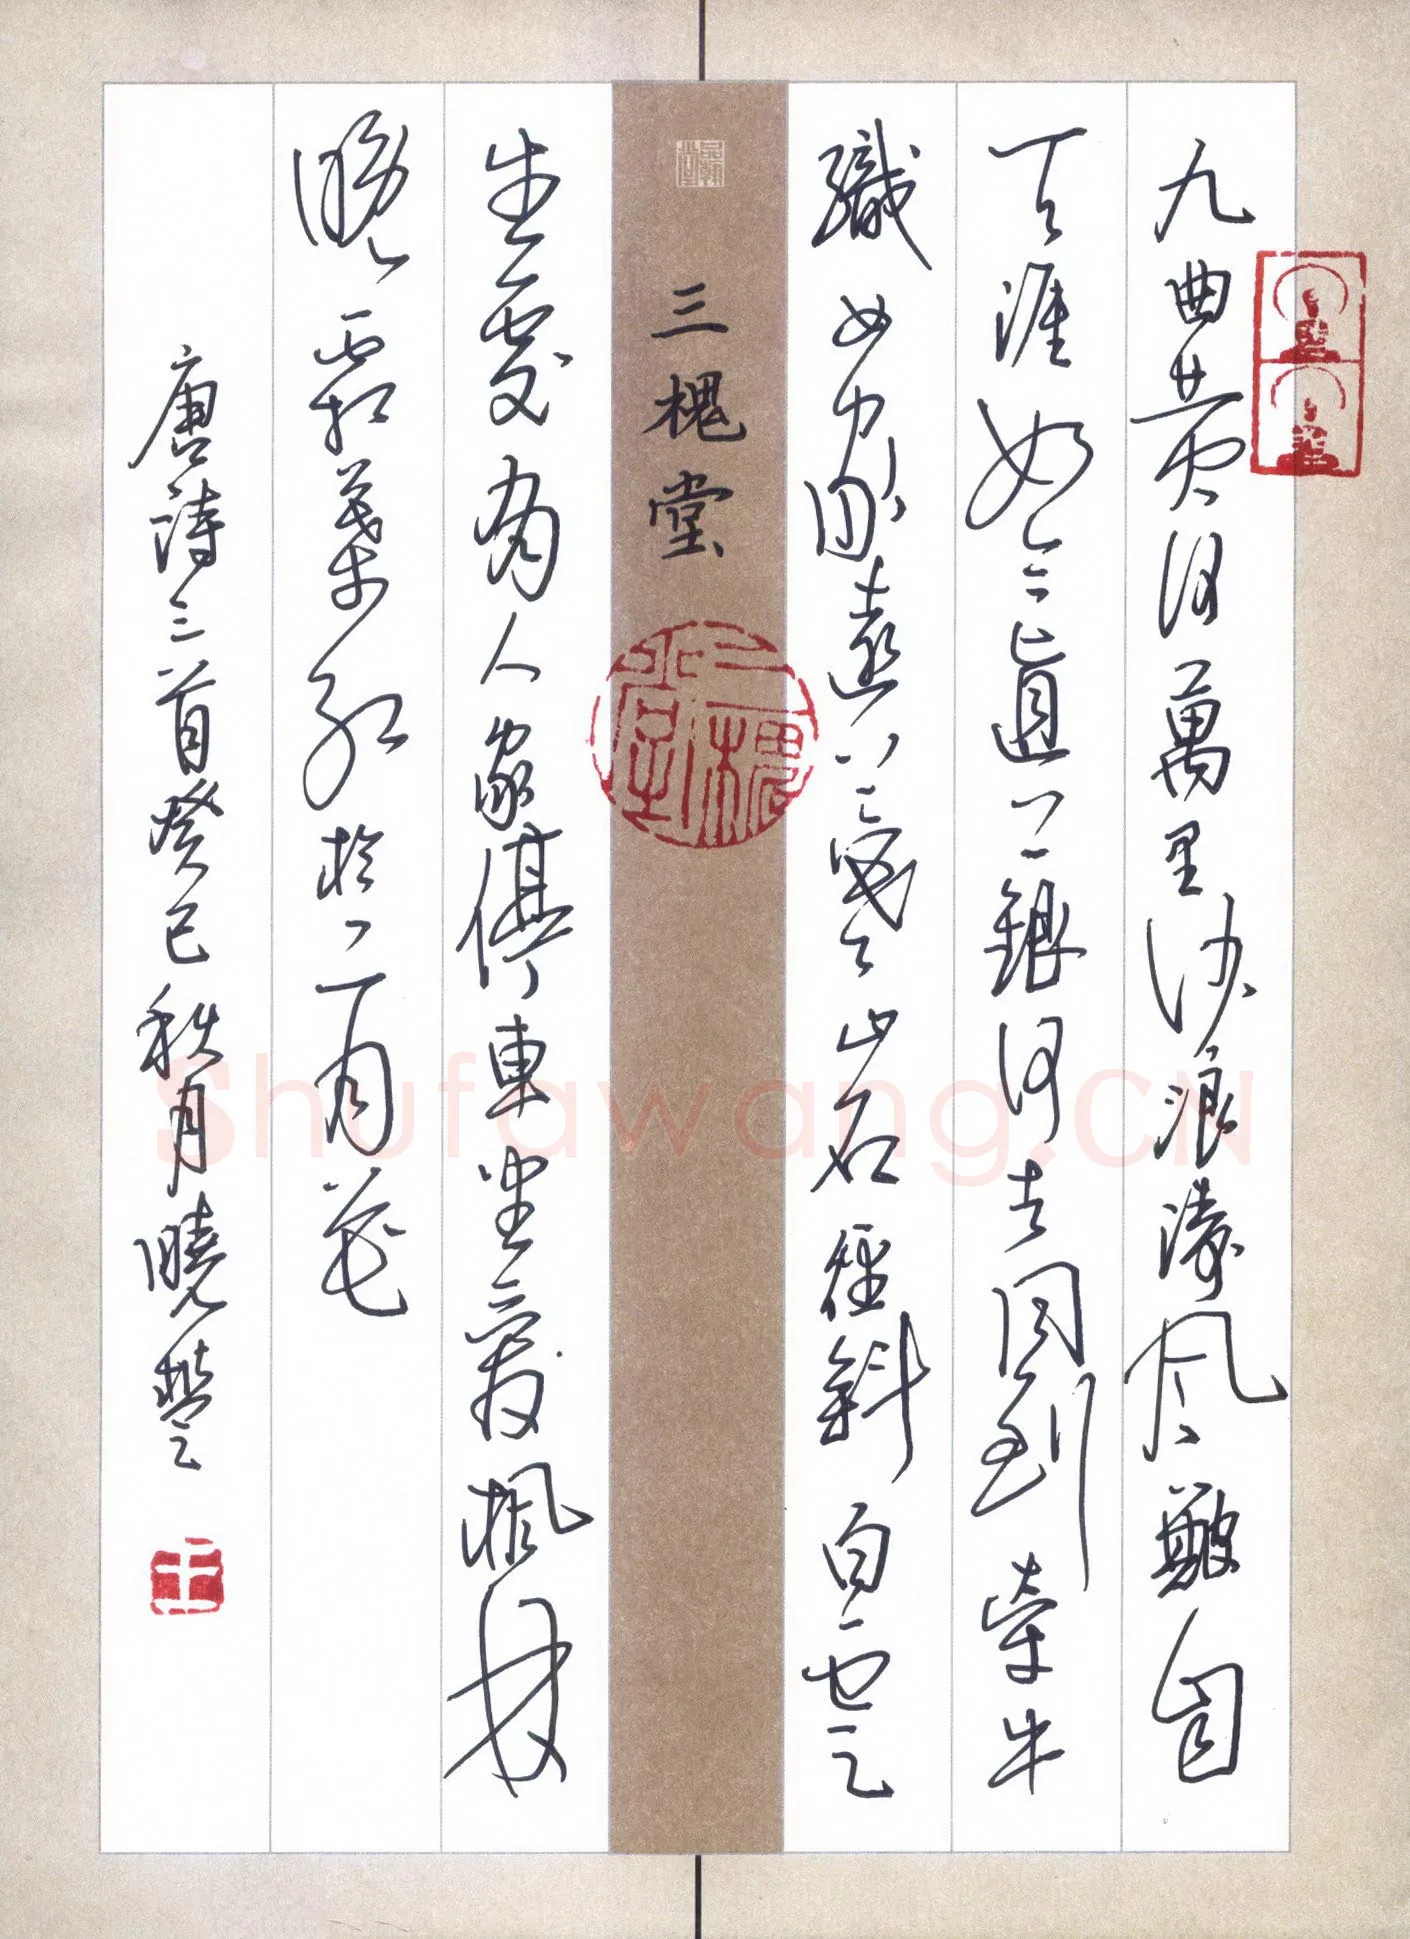 九曲黄河萬里沙浪濤風簸自
天涯如今直上銀河去同到牽牛
織女家遠上寒山石徑斜白雲
三槐堂
三槐堂
生處有人家停車坐愛楓林
晚霜葉紅於二月花
唐詩三首癸巳秋月曉楚
王
Shufawang.CN